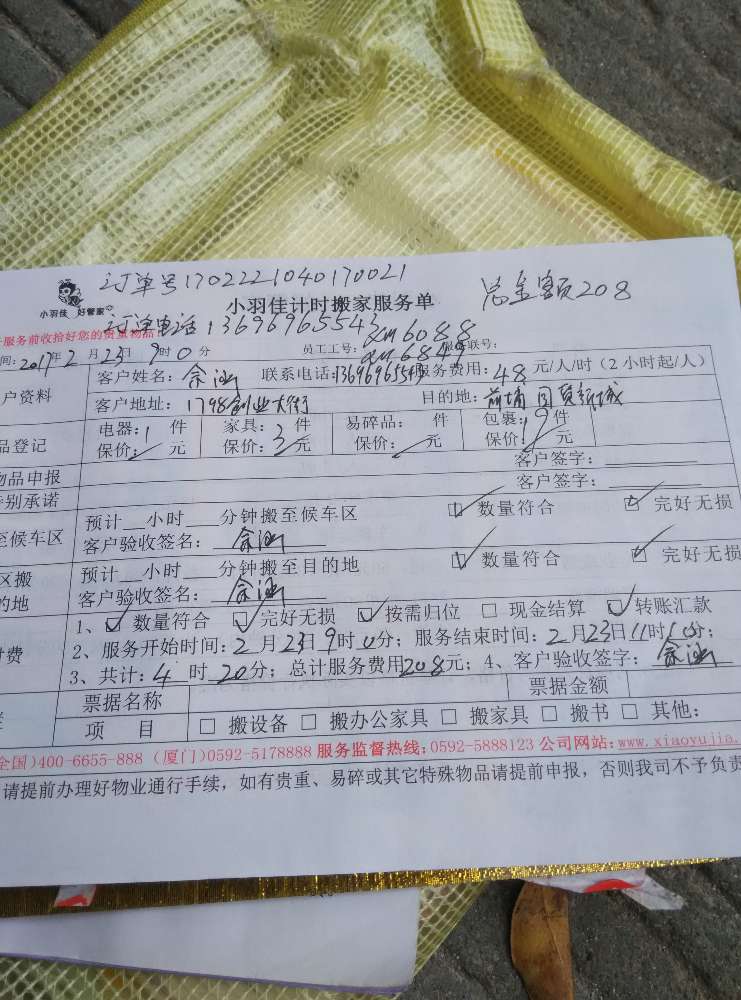 订单号1702221040170021
总金额208
小羽佳 好管家
小羽佳计时搬家服务单
服务前收拾好您的贵重物品
订单电话13696965543
xm6088
间:2017年2月23日9时0分 员工工号: xm6849 服务联号:
户资料 客户姓名:余涵 联系电话:13696965543 服务费用:48元/人/时(2小时起/人)
客户地址:1798创业大街 目的地:前埔
品登记 电器:1件 家具:3件 易碎品: 件 包裹:19件
保价: 元 保价: 元 保价: 元 保价: 元
物品申报 客户签字:
特别承诺 客户签字:
至候车区 预计 小时 分钟搬至候车区 数量符合 完好无损
客户验收签名:余涵
区搬 预计 小时 分钟搬至目的地 数量符合 完好无损
的地 客户验收签名:余涵
1、数量符合 完好无损 按需归位 现金结算 转账汇款
付费 2、服务开始时间:2月23日9时0分;服务结束时间:2月23日11时10分;
3、共计:4时20分;总计服务费用208元;4、客户验收签字:余涵
票据名称 票据金额
项 目 搬设备 搬办公家具 搬家具 搬书 其他:
全国)400-6655-888 (厦门)0592-5178888 服务监督热线:0592-5888123 公司网站:www.xiaoyujia.
请提前办理好物业通行手续,如有贵重、易碎或其它特殊物品请提前申报,否则我司不予负责